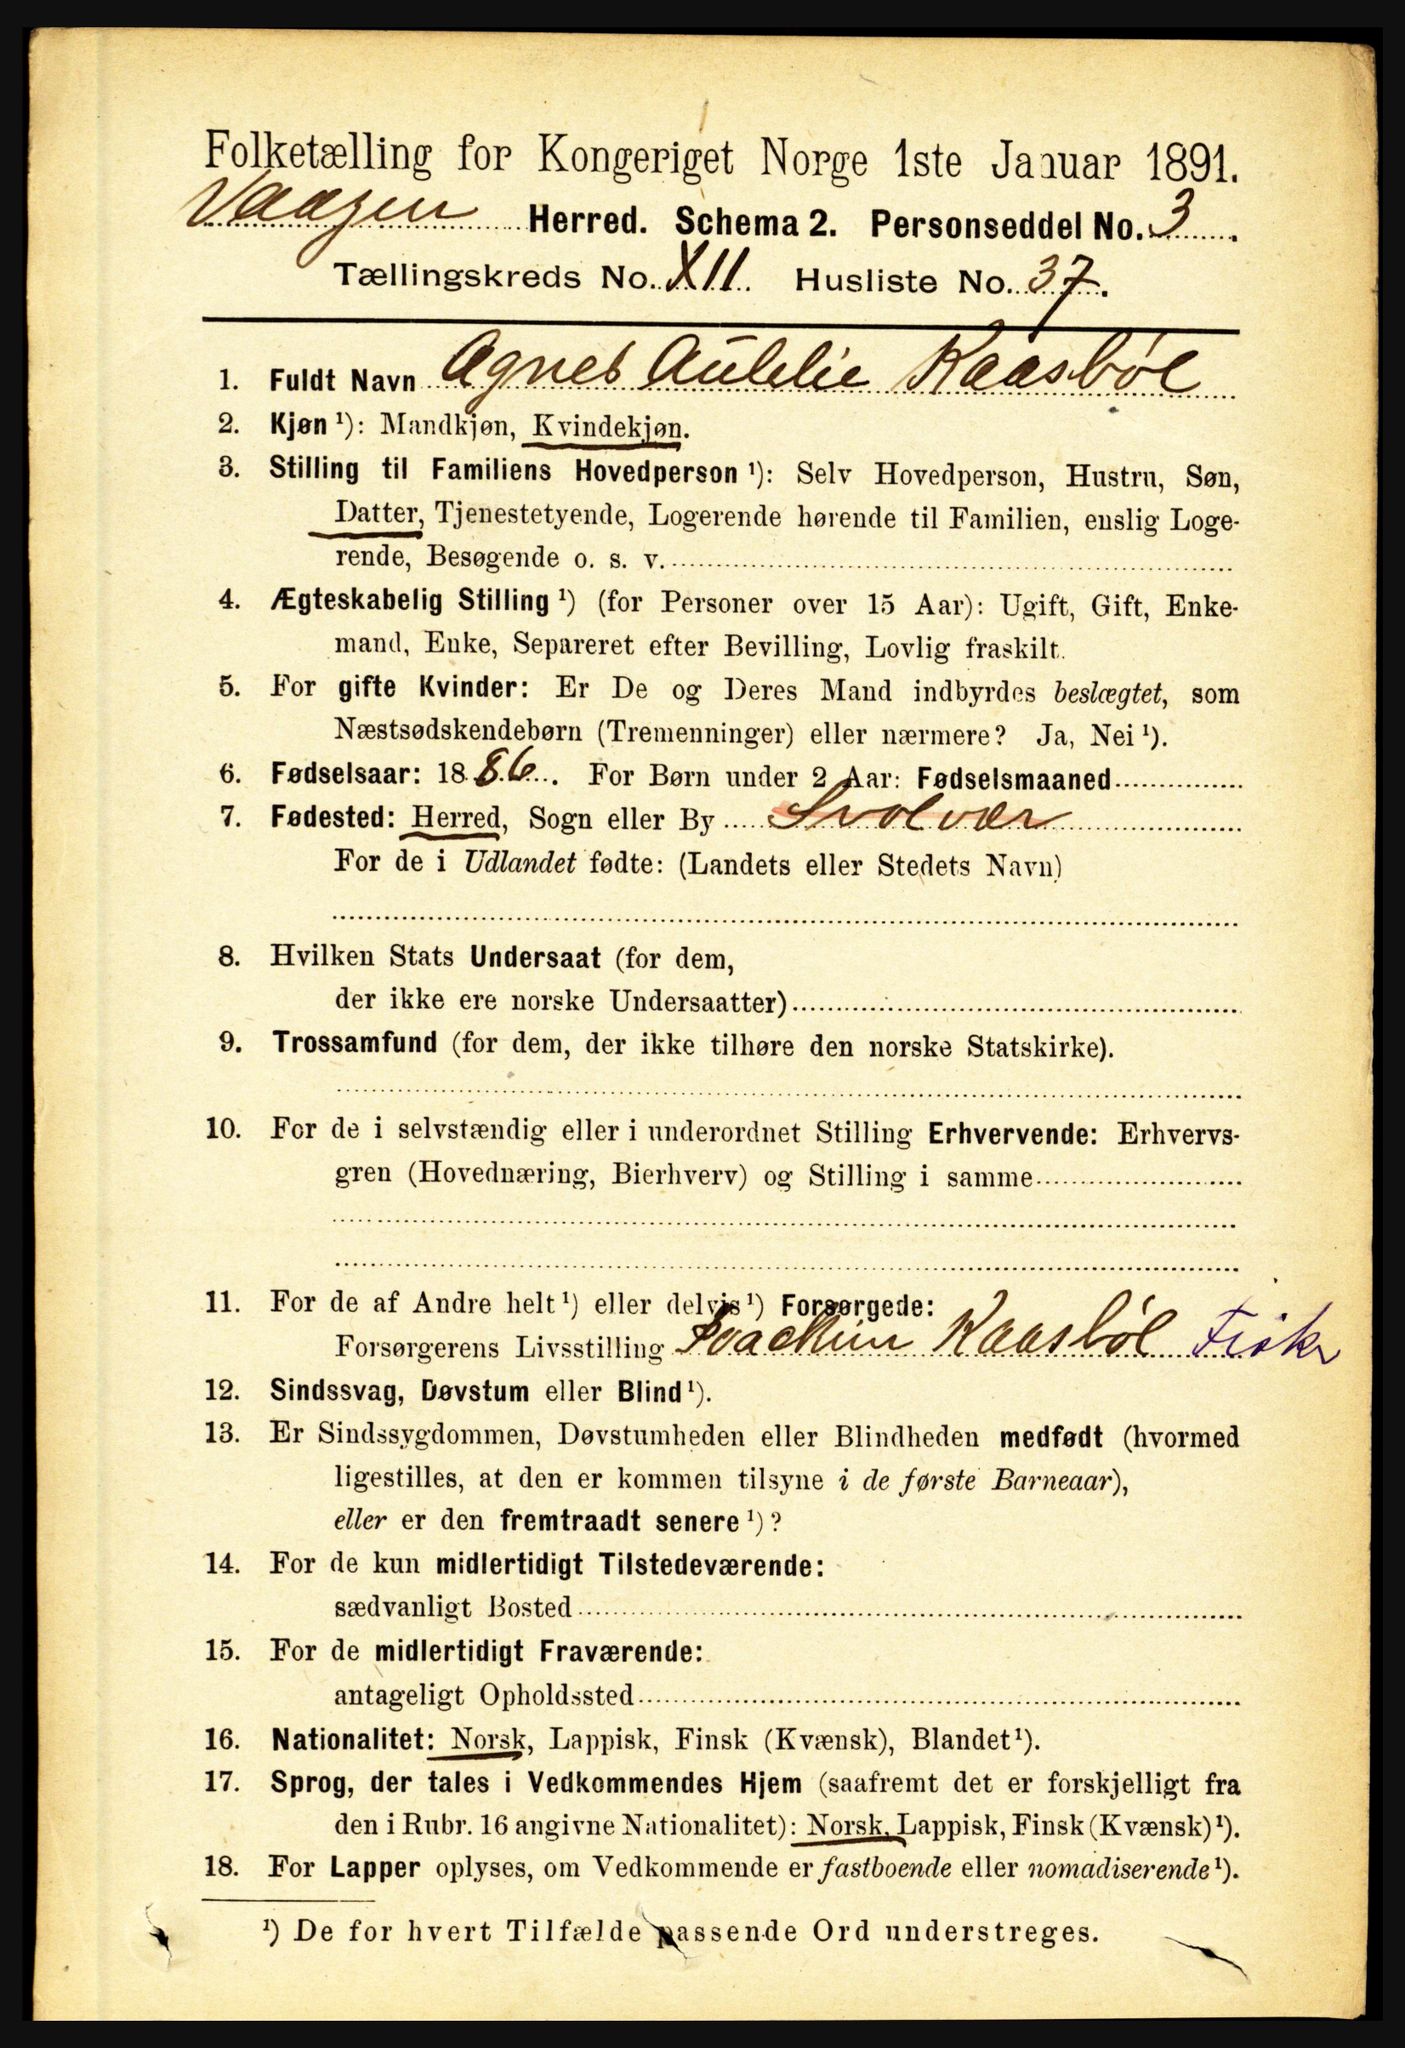 Folketælling for Kongeriget Norge 1ste Januar 1891.
Vaagen Herred. Schema 2. Personseddel No. 3.
Tællingskreds No. XII. Husliste No. 37.
1. Fuldt Navn Agnes Aulelie Kaasbøl
2. Kjøn ¹): Mandkjøn, Kvindekjøn.
3. Stilling til Familiens Hovedperson ¹): Selv Hovedperson, Hustru, Søn,
Datter, Tjenestetyende, Logerende hørende til Familien, enslig Loge-
rende, Besøgende o. s. v.
4. Ægteskabelig Stilling ¹) (for Personer over 15 Aar): Ugift, Gift, Enke-
mand, Enke, Separeret efter Bevilling, Lovlig fraskilt.
5. For gifte Kvinder: Er De og Deres Mand indbyrdes beslægtet, som
Næstsødskendebørn (Tremenninger) eller nærmere? Ja, Nei ¹).
6. Fødselsaar: 1886. For Børn under 2 Aar: Fødselsmaaned
7. Fødested: Herred, Sogn eller By Svolvær
For de i Udlandet fødte: (Landets eller Stedets Navn)
8. Hvilken Stats Undersaat (for dem,
der ikke ere norske Undersaatter)
9. Trossamfund (for dem, der ikke tilhøre den norske Statskirke).
10. For de i selvstændig eller i underordnet Stilling Erhvervende: Erhvervs-
gren (Hovednæring, Bierhverv) og Stilling i samme
11. For de af Andre helt ¹) eller delvis ¹) Forsørgede:
Forsørgerens Livsstilling Joachim Kaasbøl Fisker
12. Sindssvag, Døvstum eller Blind ¹).
13. Er Sindssygdommen, Døvstumheden eller Blindheden medfødt (hvormed
ligestilles, at den er kommen tilsyne i de første Barneaar),
eller er den fremtraadt senere ¹)?
14. For de kun midlertidigt Tilstedeværende:
sædvanligt Bosted
15. For de midlertidigt Fraværende:
antageligt Opholdssted
16. Nationalitet: Norsk, Lappisk, Finsk (Kvænsk), Blandet ¹).
17. Sprog, der tales i Vedkommendes Hjem (saafremt det er forskjelligt fra
den i Rubr. 16 angivne Nationalitet): Norsk, Lappisk, Finsk (Kvænsk) ¹).
18. For Lapper oplyses, om Vedkommende er fastboende eller nomadiserende ¹).
¹) De for hvert Tilfælde passende Ord understreges.